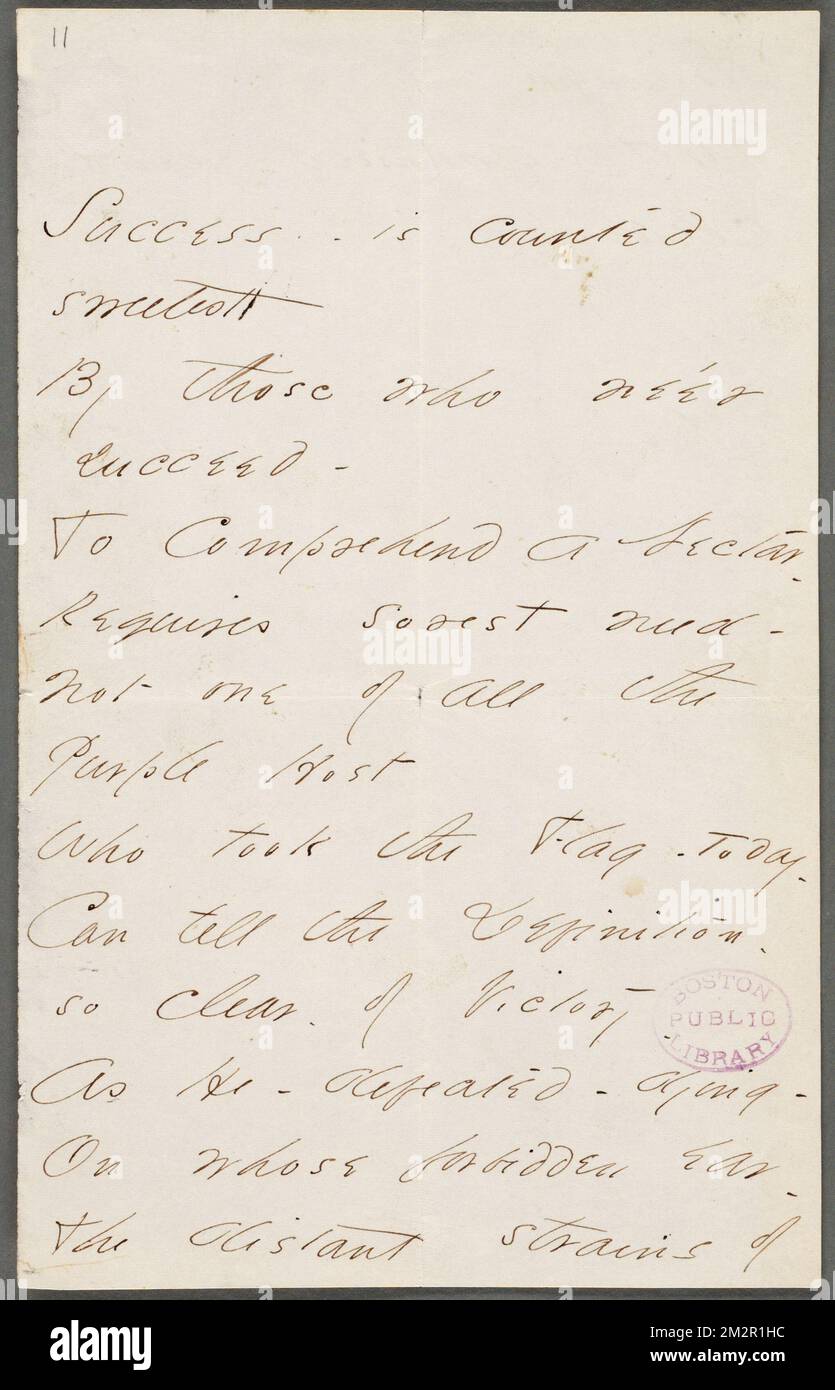 11
Success - is counted
sweetest
By those who ne'er
succeed -
To Comprehend a Nectar -
Requires sorest need -
Not one of all the
Purple Host
Who took the Flag - Today -
Can tell the Definition -
so clear - of Victory -
BOSTON
PUBLIC
LIBRARY
As He - defeated - dying -
On whose forbidden ear -
the distant strains of
a
alamy
alamy
Image ID: 2M2R1HC
www.alamy.com